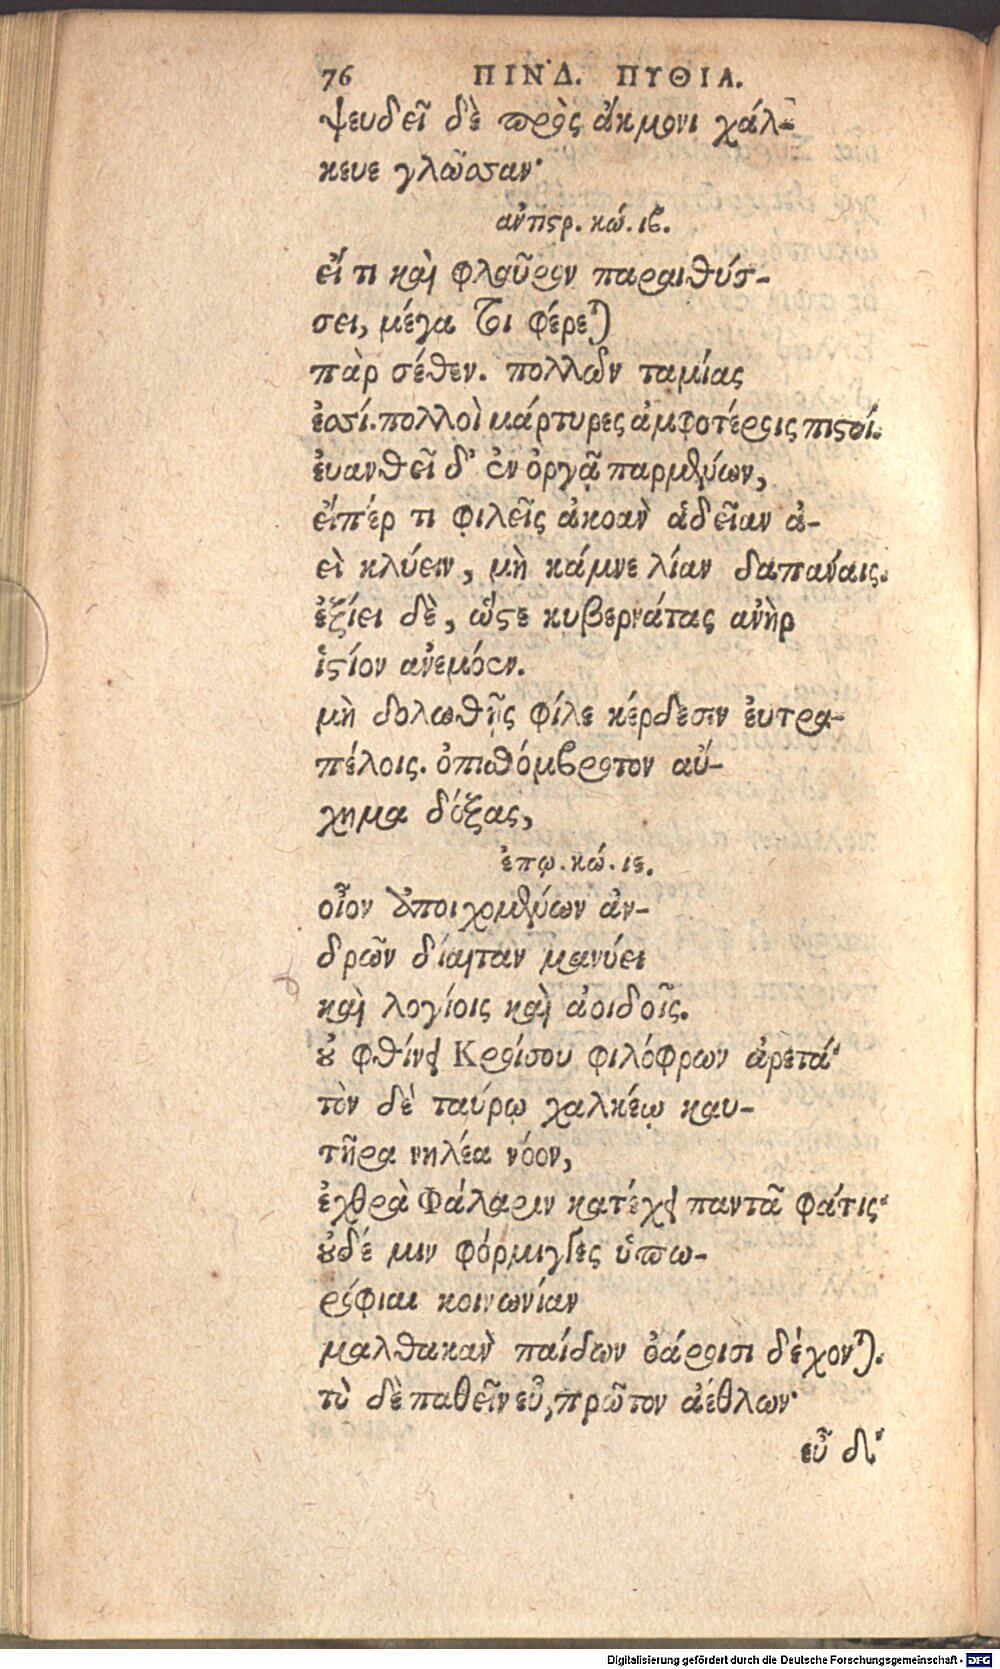 76 ΠΙΝΔ. ΠΥΘΙΑ.
ψευδεῖ δὲ πρὸς ἄκμονι χάλ-
κευε γλῶσσαν·
ἀντιστρ. κώ. ιβ.
εἴ τι καὶ φλαῦρον παραιθύσ-
σει, μέγα τοι φέρεται
πὰρ σέθεν. πολλῶν ταμίας
ἐσσί. πολλοὶ μάρτυρες ἀμφοτέροις πιστοί.
ἐυανθεῖ δ' ἐν ὀργᾷ παρμένων,
εἴπέρ τι φιλεῖς ἀκοὰν ἁδεῖαν ἀ-
εὶ κλύειν, μὴ κάμνε λίαν δαπάναις.
ἐξίει δὲ, ὥστε κυβερνάτας ἀνὴρ
ἱστίον ἀνεμόεν.
μὴ δολωθῇς φίλε κέρδεσιν ἐυτρα-
πέλοις. ὀπιθόμβροτον αὔ-
χημα δόξας,
ἐπῳ. κώ. ιε.
οἶον ἀποιχομένων ἀν-
δρῶν δίαιταν μανύει
καὶ λογίοις καὶ ἀοιδοῖς.
οὐ φθίνει Κροίσου φιλόφρων ἀρετά·
τὸν δὲ ταύρῳ χαλκέῳ καυ-
τῆρα νηλέα νόον,
ἐχθρὰ Φάλαριν κατέχει παντᾶ φάτις·
οὐδέ μιν φόρμιγγες ὑπω-
ρόφιαι κοινωνίαν
μαλθακὰν παίδων ὀάροισι δέχονται.
τὸ δὲ παθεῖν εὖ, πρῶτον ἀέθλων·
εὖ δ'
Digitalisierung gefördert durch die Deutsche Forschungsgemeinschaft - DFG